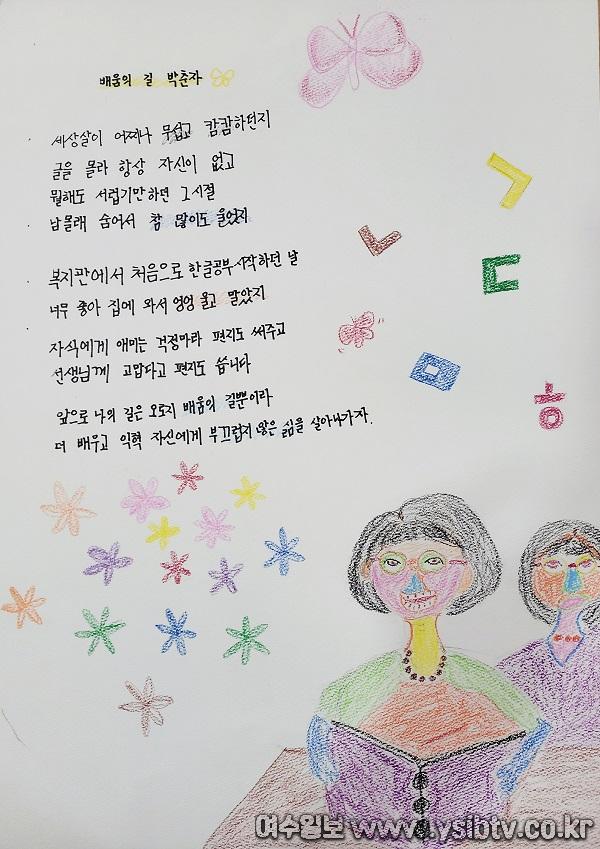 배움의 길 박춘자
세상살이 어찌나 무섭고 캄캄하던지
글을 몰라 항상 자신이 없고
뭘해도 서럽기만하던 그시절
남몰래 숨어서 참 많이도 울었지
복지관에서 처음으로 한글공부시작하던 날
너무 좋아 집에 와서 엉엉 울고 말았지
자식에게 애미는 걱정마라 편지도 써주고
선생님께 고맙다고 편지도 씁니다
앞으로 나의 길은 오로지 배움의 길뿐이라
더 배우고 익혀 자신에게 부끄럽지 않은 삶을 살아나가자.
ㄱ
ㄴ
ㄷ
ㅁ
ㅎ
여수일보 www.ysibtv.co.kr